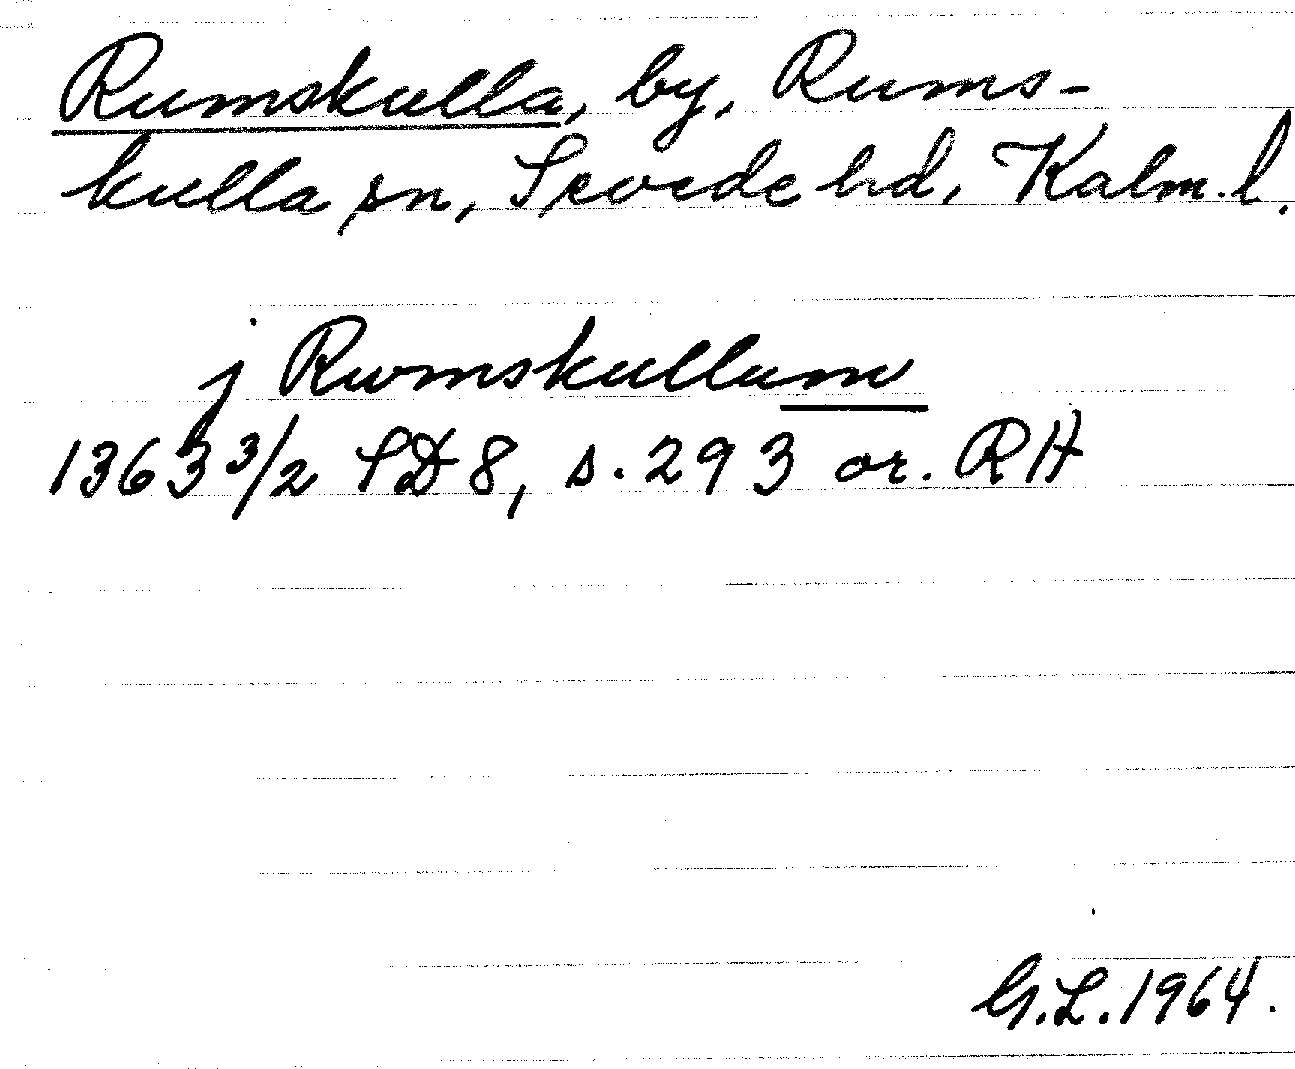 Rumskulla, by, Rums-
kulla sn, Sevede hd, Kalm. l.
j Rwmskullum
1363 3/2 SD 8, s. 293 or. RA
G.L. 1964.